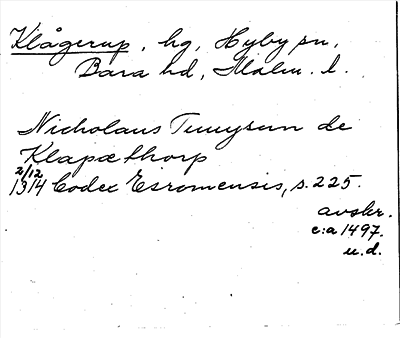 Klågerup, hg, Hyby sn,
Bara hd, Malm. l.
Nicholaus Tuuysun de
Klapæthorp
2/12
1314 Codex Esromensis, s. 225.
avskr.
c:a 1497.
u.d.